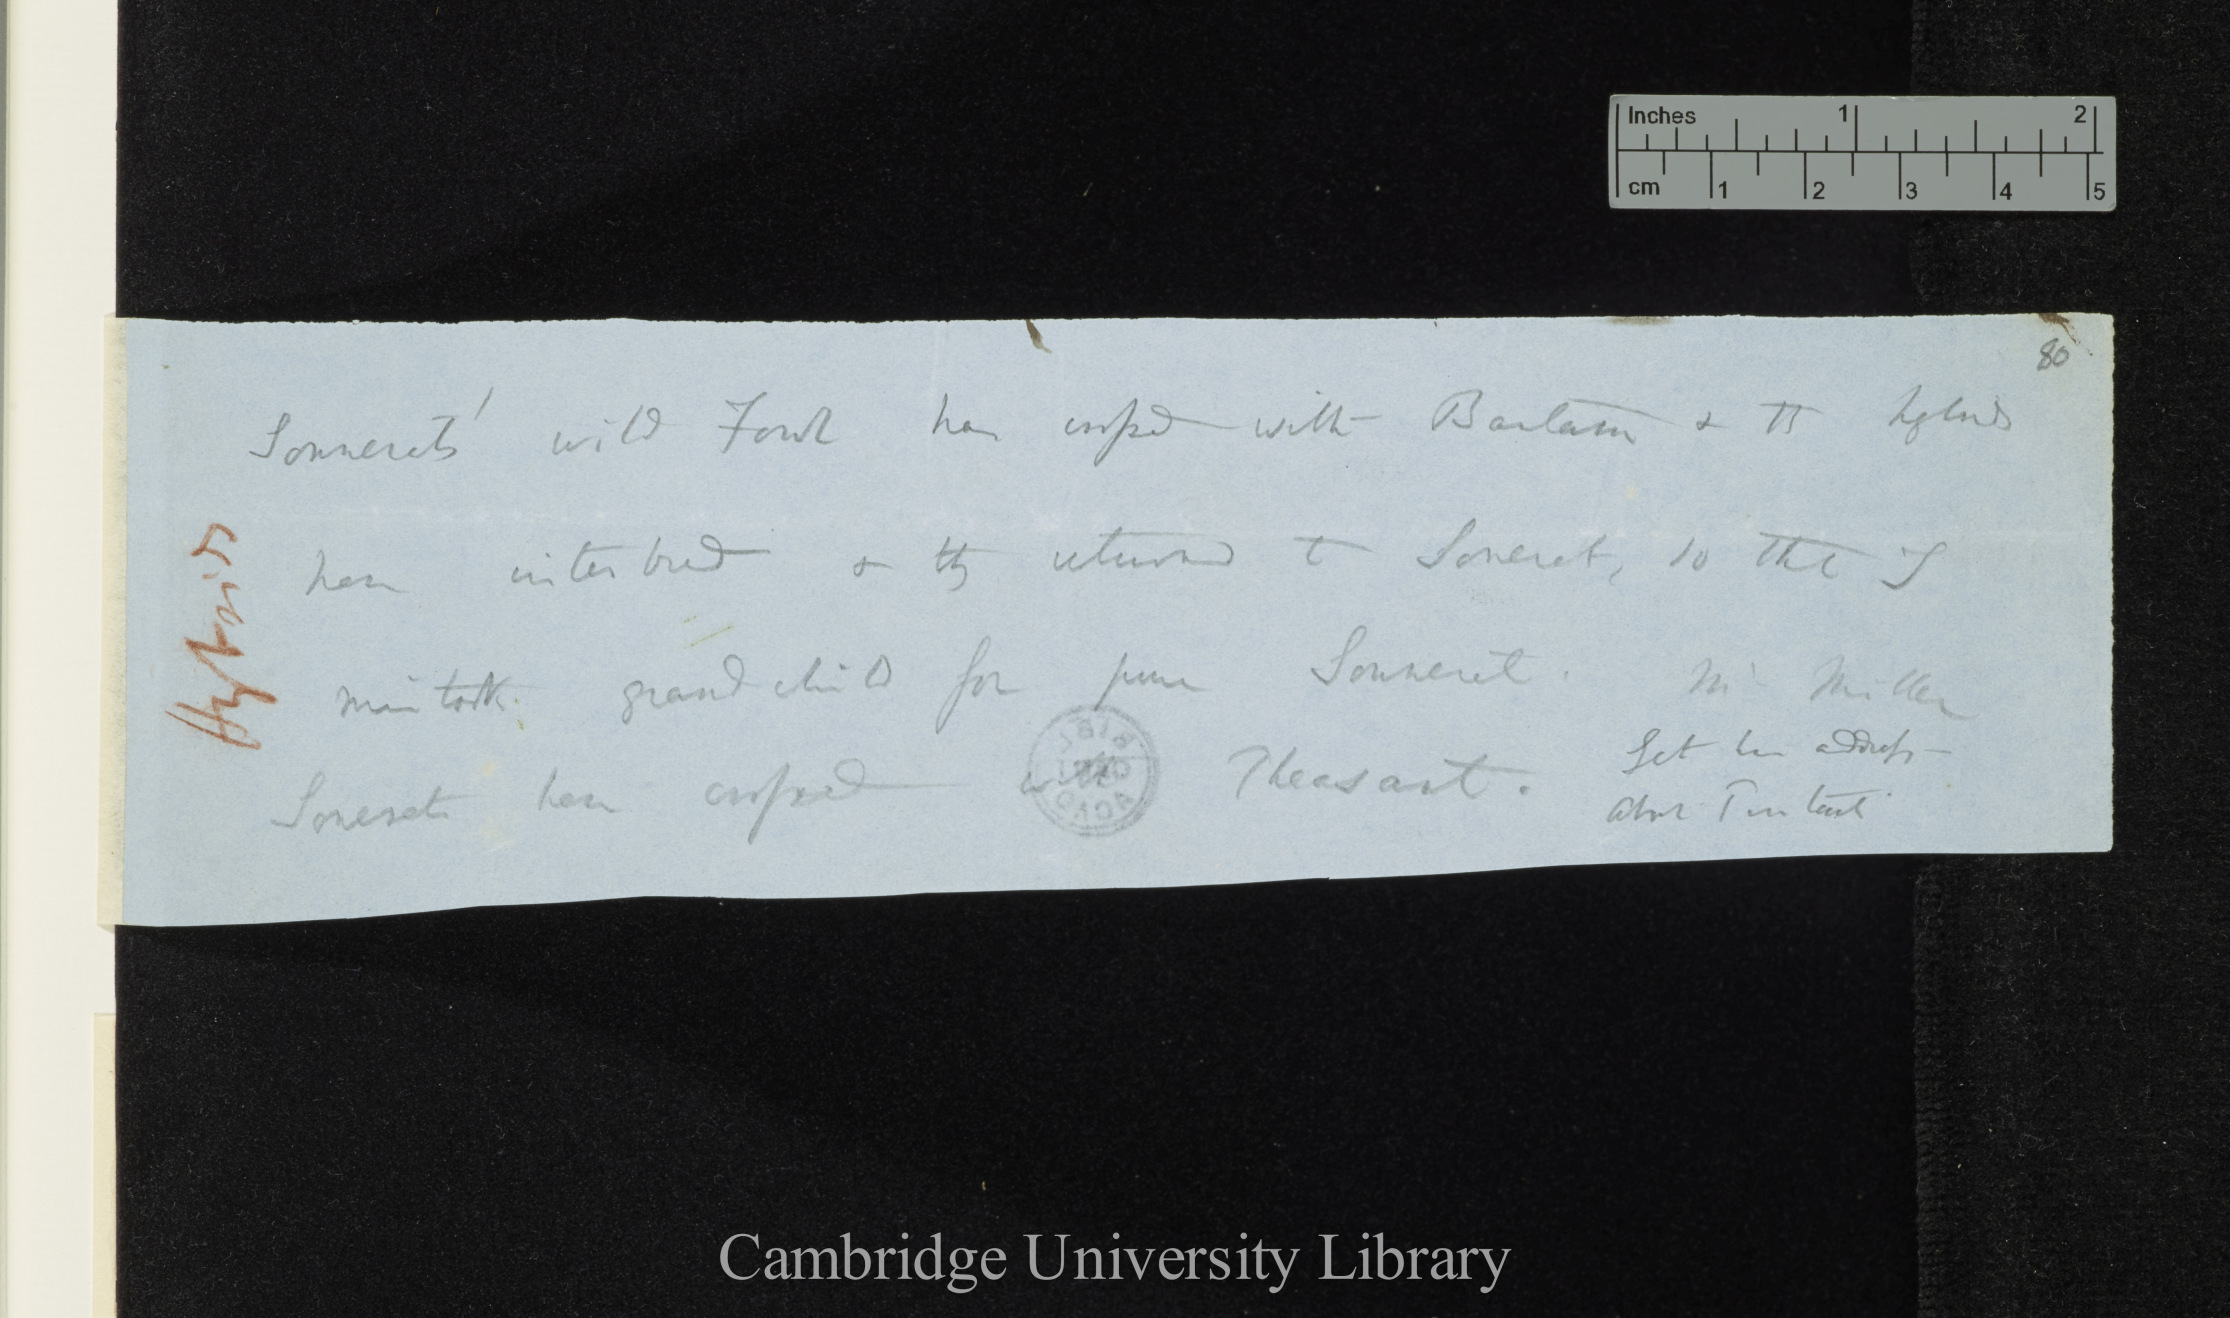 Inches 1 2
cm 1 2 3 4 5
80
Sonnerats' wild Fowl has crossed with Bantam & the hybrids
have interbred & then returned to Sonerat, so that I
mistook grandchild for pure Sonnerat. Mr Miller
Sonerats have crossed with Pheasant.
Get his address
about
Hybrids
Cambridge University Library